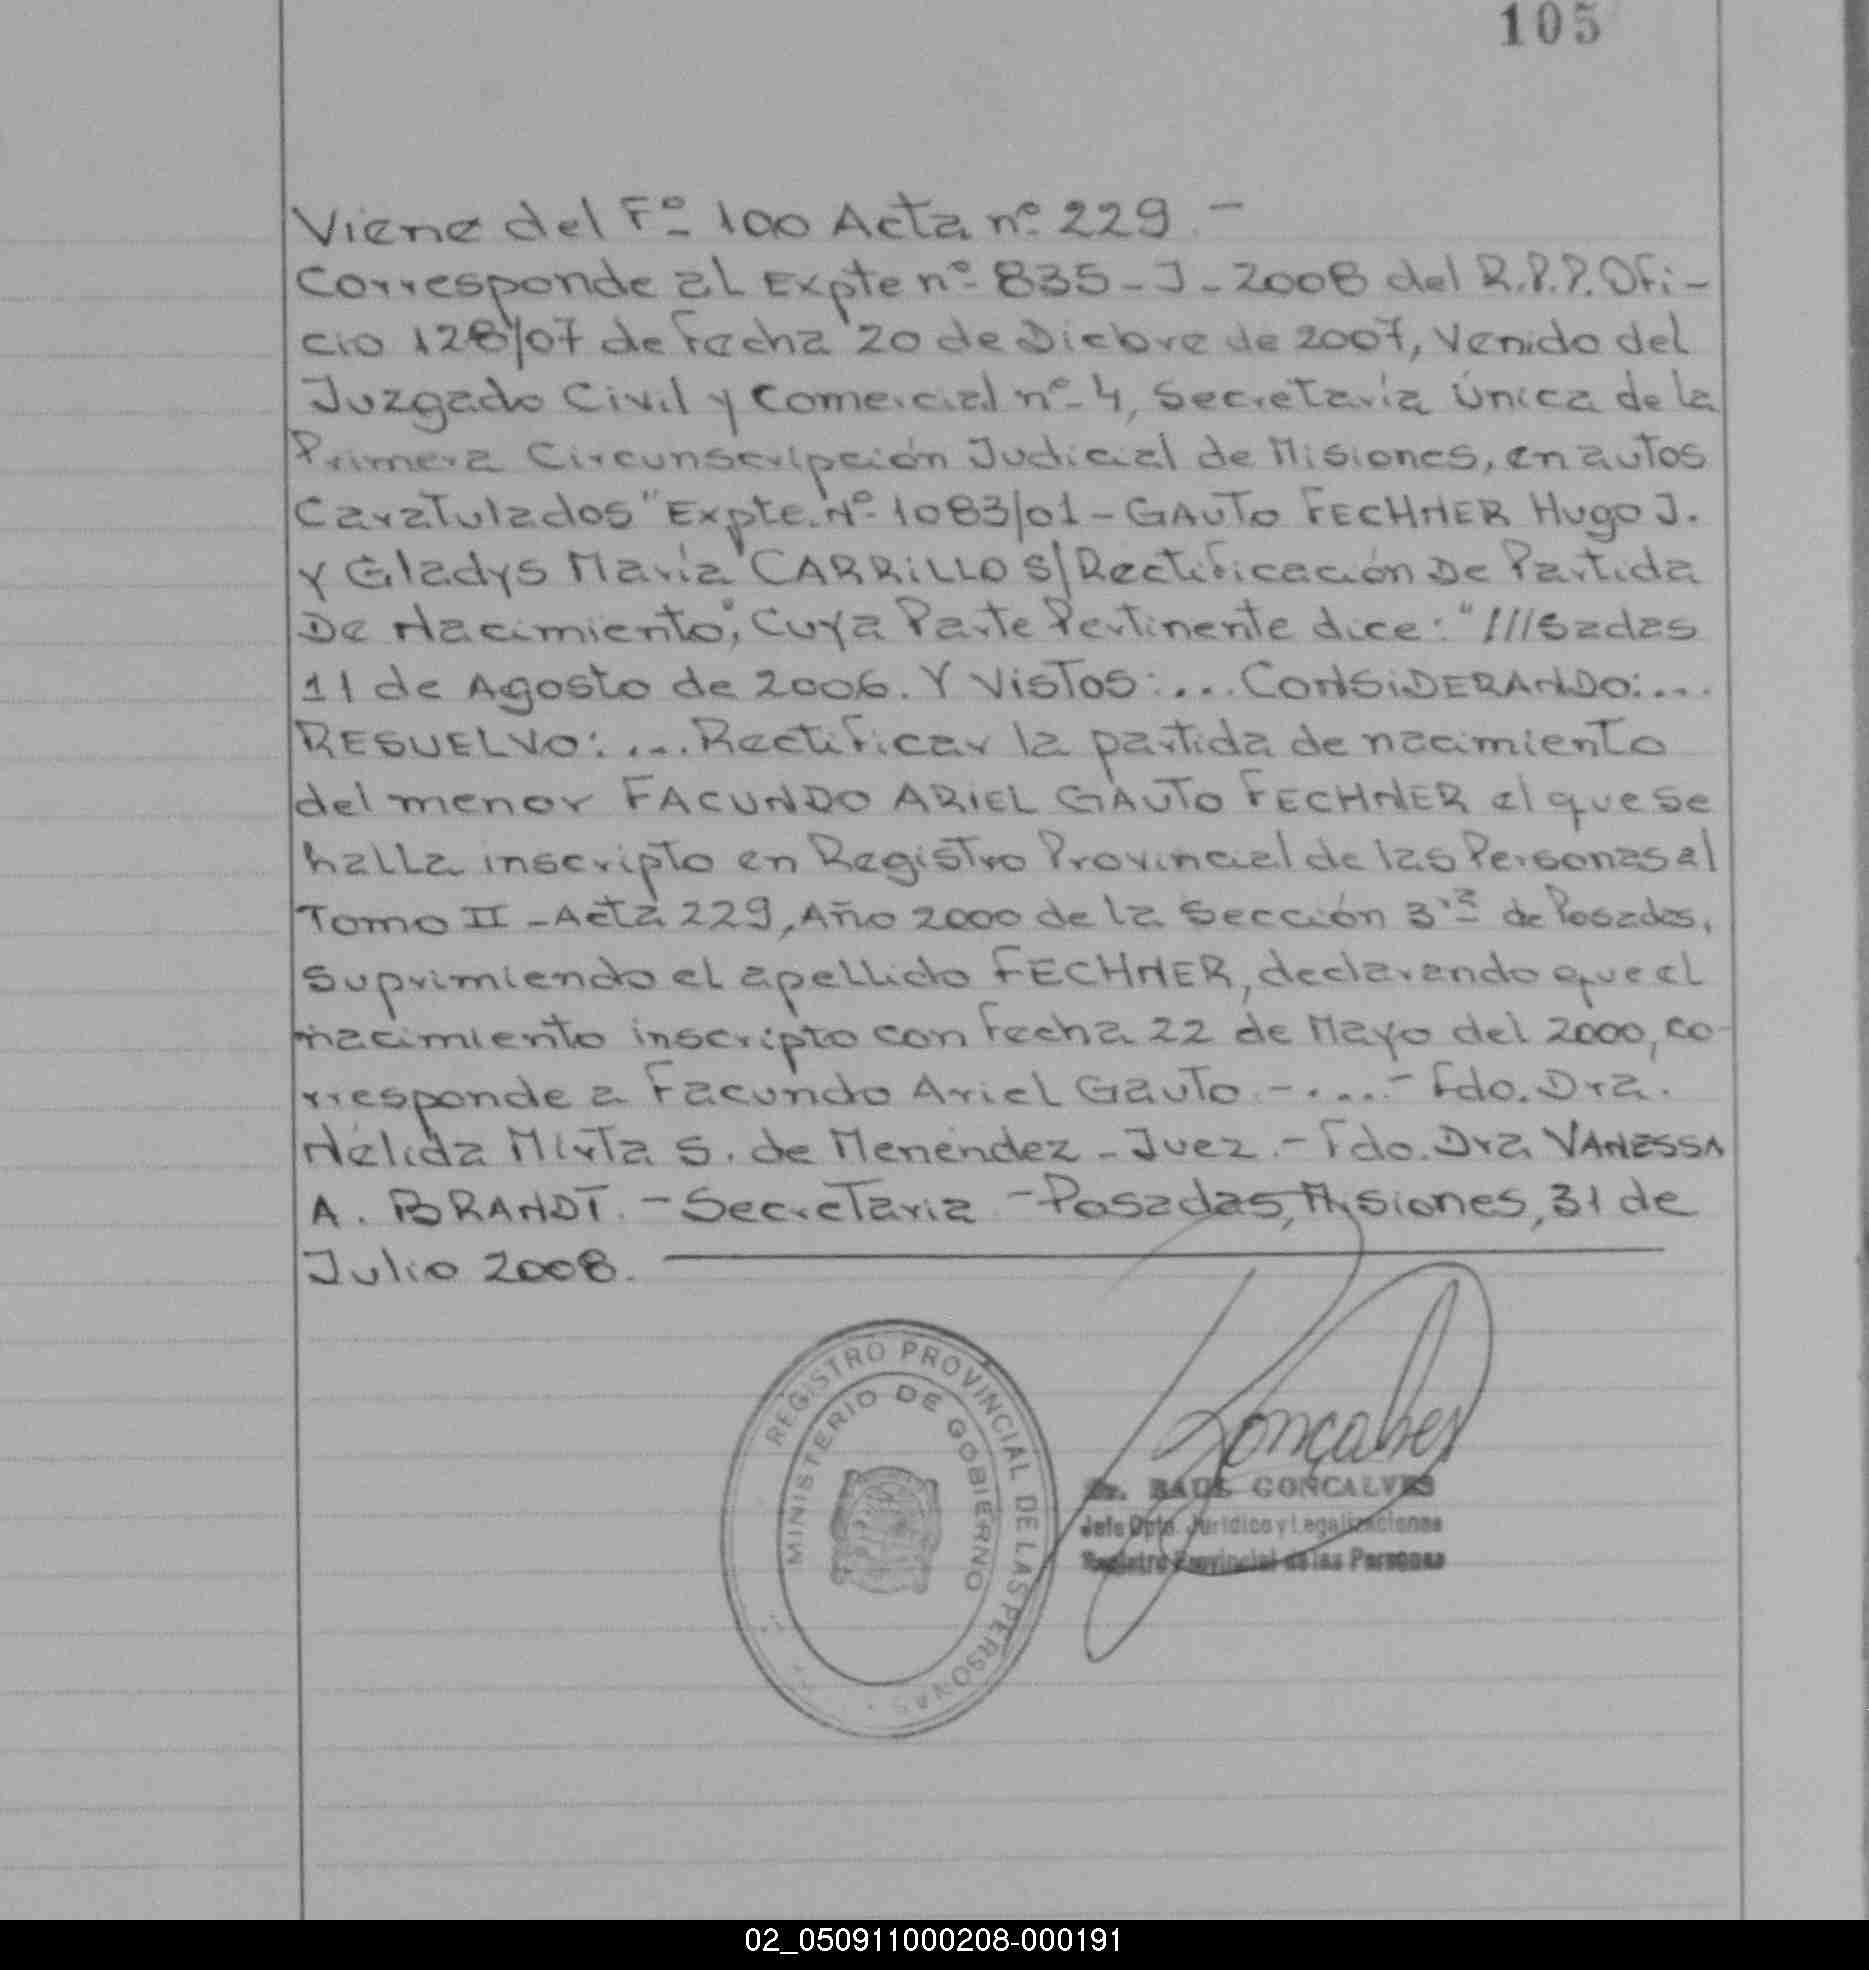 105
Viene del Fº 100 Acta nº 229.-
Corresponde al Expte nº 835-J-2008 del R.P.P. Ofi-
cio 128/07 de fecha 20 de Dicbre de 2007, Venido del
Juzgado Civil y Comercial nº 4, Secretaría Única de la
Primera Circunscripción Judicial de Misiones, en autos
Caratulados "Expte. Nº 1083/01-GAUTO FECHNER Hugo J.
Y Gladys María CARRILLO S/Rectificación De Partida
De Nacimiento", Cuya Parte Pertinente dice: "///sadas
11 de Agosto de 2006. Y VISTOS:... CONSIDERANDO:...
RESUELVO:... Rectificar la partida de nacimiento
del menor FACUNDO ARIEL GAUTO FECHNER el que se
halla inscripto en Registro Provincial de las Personas al
Tomo II-Acta 229, Año 2000 de la Sección 3ra de Posadas,
suprimiendo el apellido FECHNER, declarando que el
nacimiento inscripto con fecha 22 de Mayo del 2000, co-
rresponde a Facundo Ariel Gauto.-....- Fdo. Dra.
Nélida Mirta S. de Menéndez-Juez.-Fdo. Dra VANESSA
A. BRANDT.-Secretaria.-Posadas, Misiones, 31 de
Julio 2008.
REGISTRO PROVINCIAL DE LAS PERSONAS
MINISTERIO DE GOBIERNO
Gonçalves
Dr. RAUL GONCALVES
Jefe Dpto. Jurídico y Legalizaciones
Registro Provincial de las Personas
02_050911000208-000191